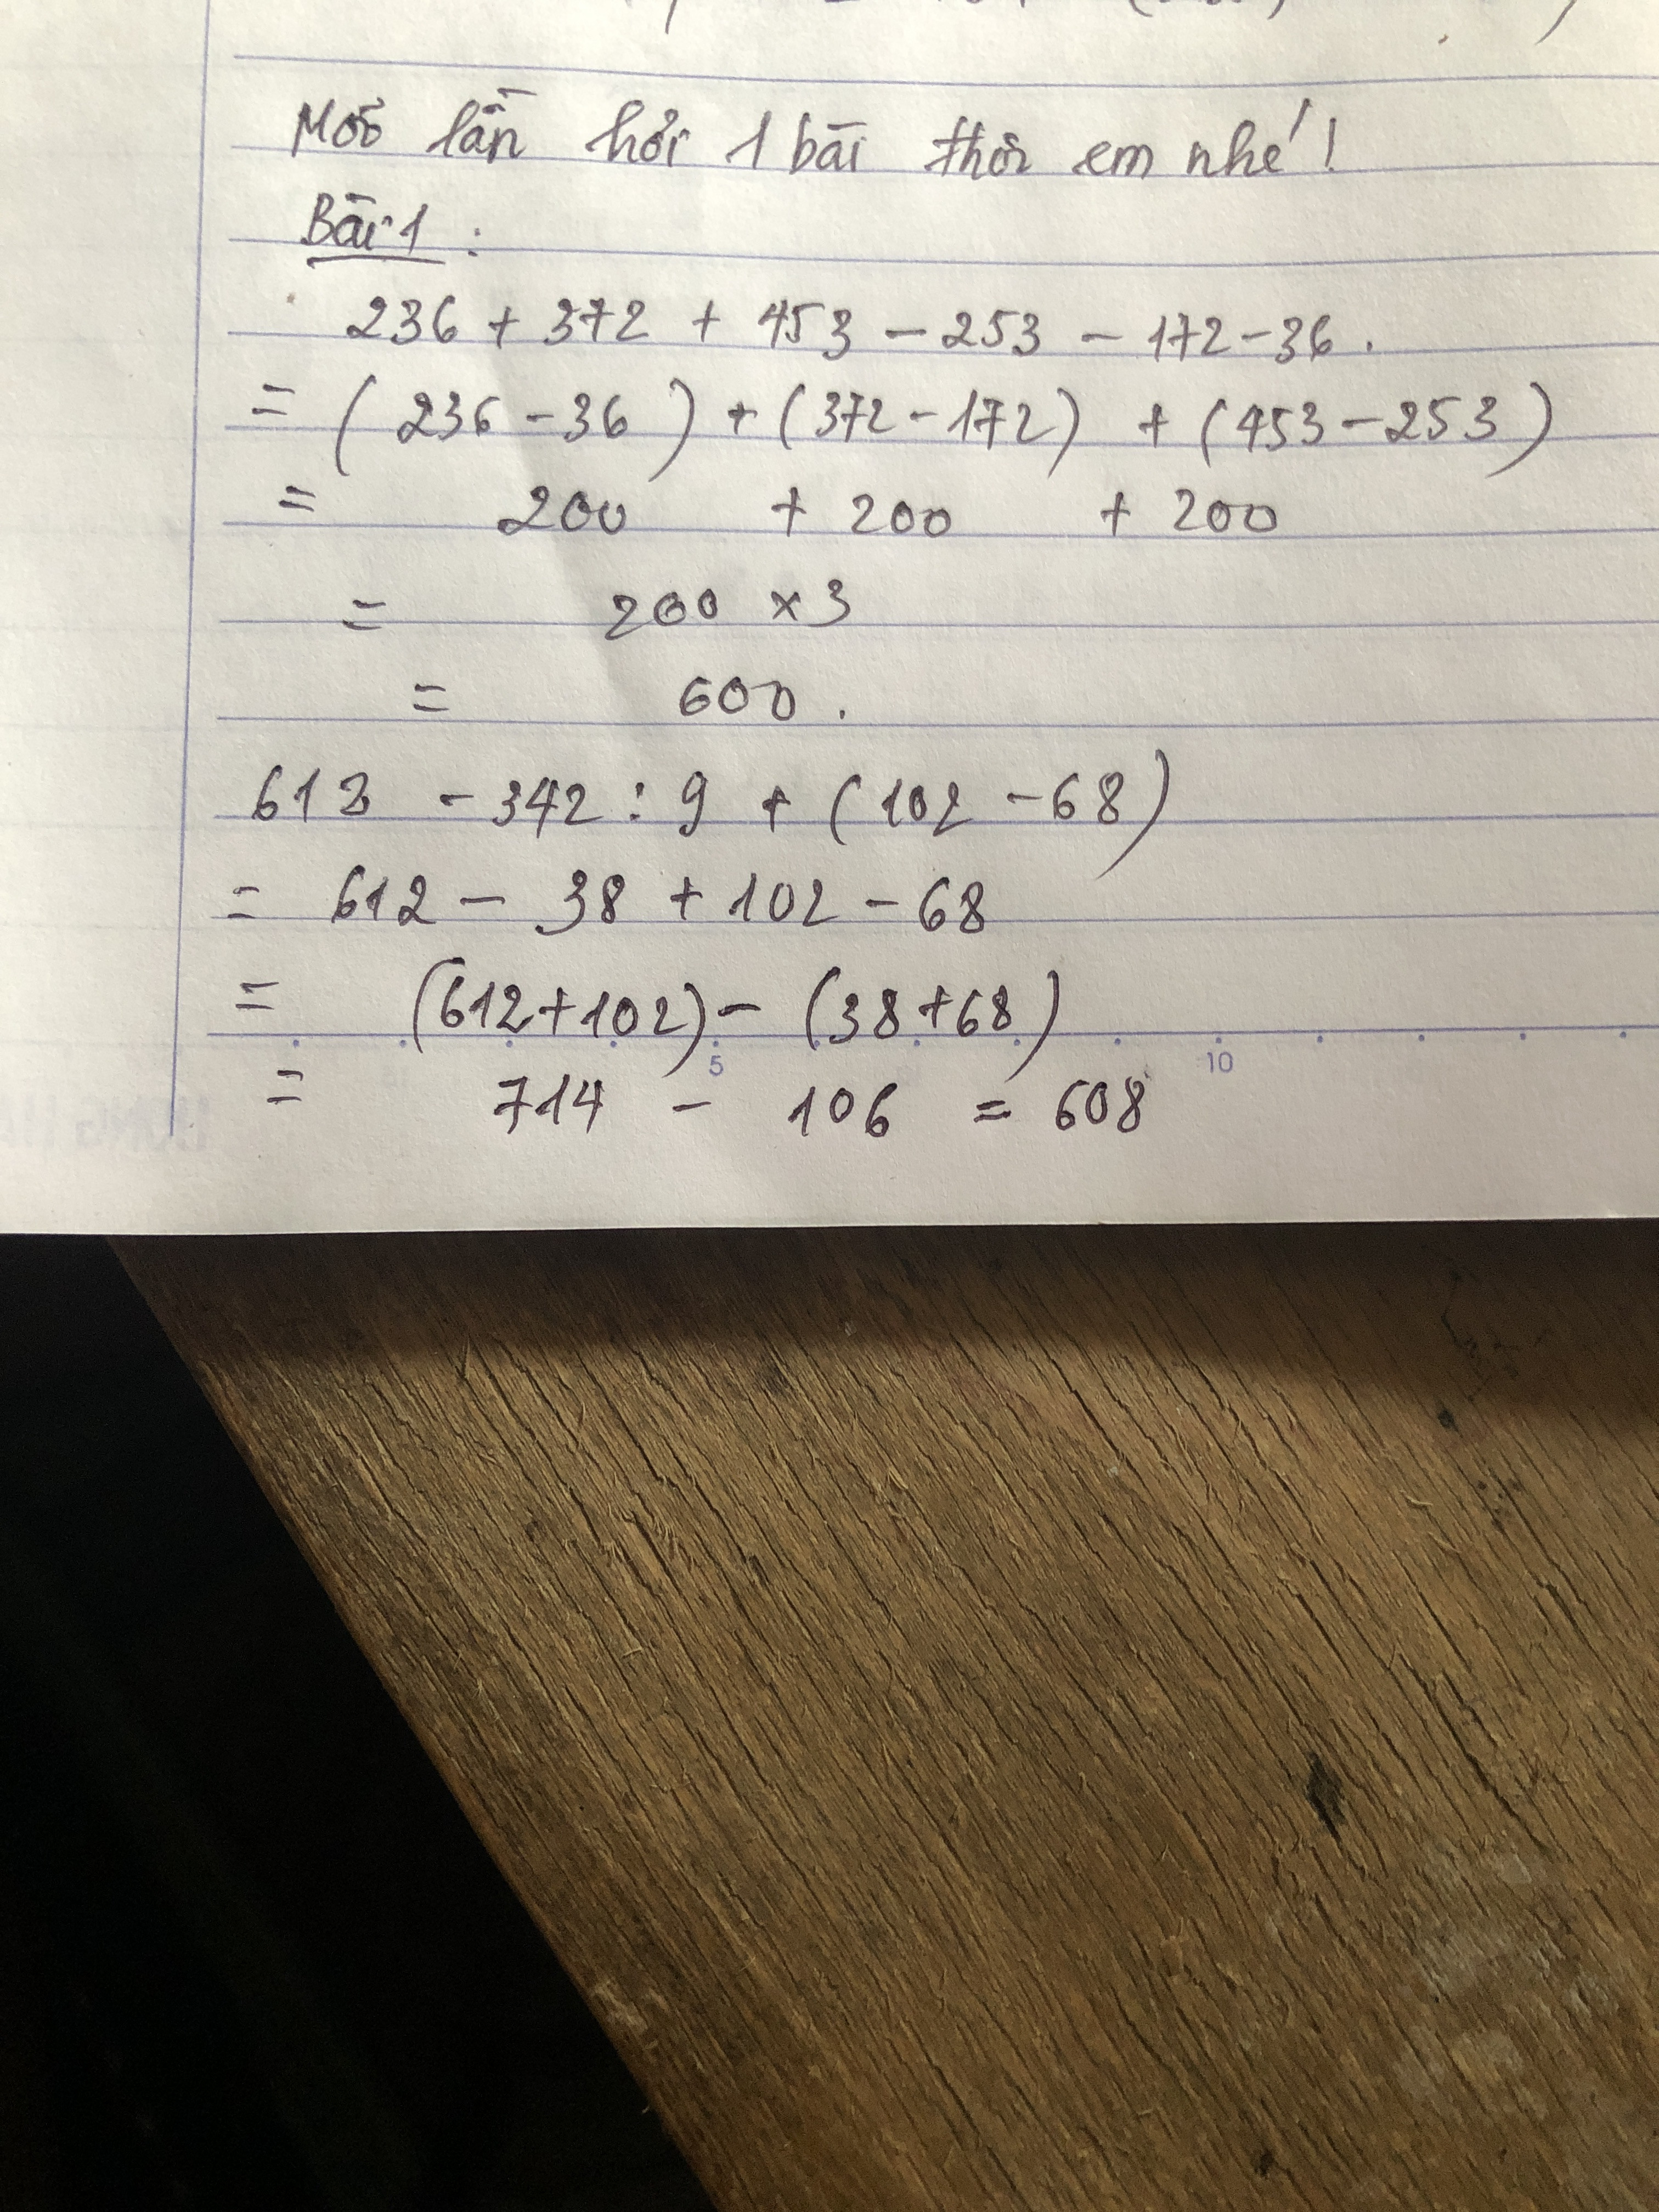 Mỗi lần hỏi 1 bài thôi em nhé!
Bài 1:
236 + 372 + 453 - 253 - 172 - 36.
= (236 - 36) + (372 - 172) + (453 - 253)
= 200 + 200 + 200
= 200 × 3
= 600.
612 - 342 : 9 + (102 - 68)
= 612 - 38 + 102 - 68
= (612 + 102) - (38 + 68)
5 10
= 714 - 106 = 608